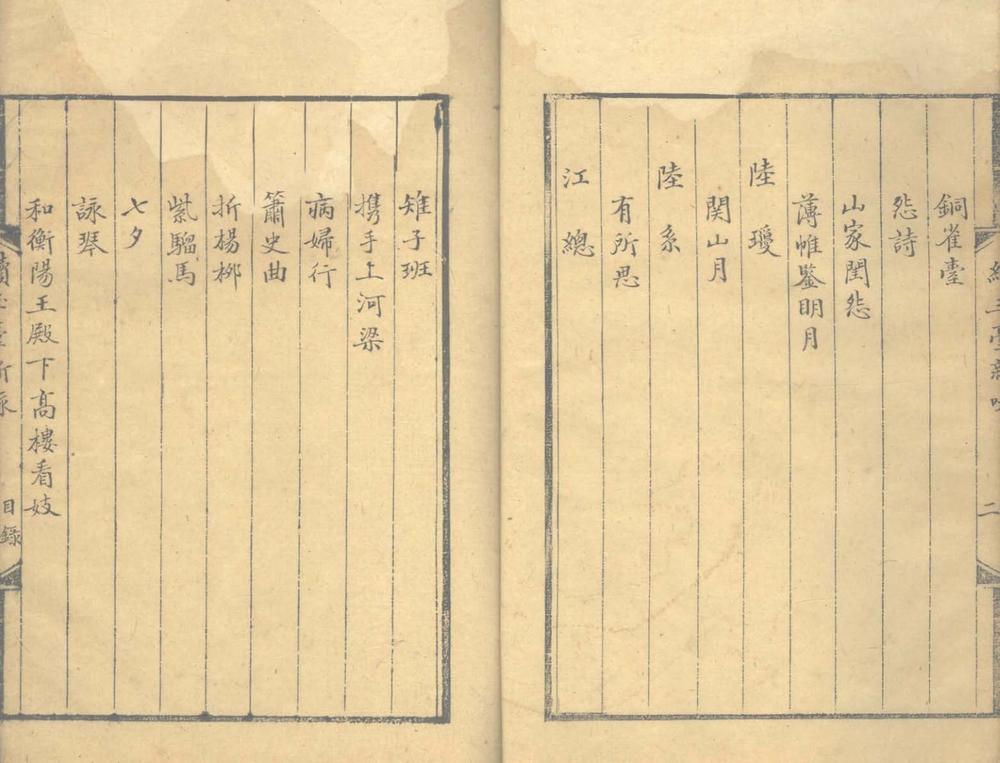 銅雀臺
怨詩
山家閨怨
薄帷鑒明月
陸瓊
関山月
陸系
有所思
江總
雉子班
携手上河梁
病婦行
簫史曲
折楊柳
紫騮馬
七夕
詠琴
和衡陽王殿下高樓看妓
目錄
二